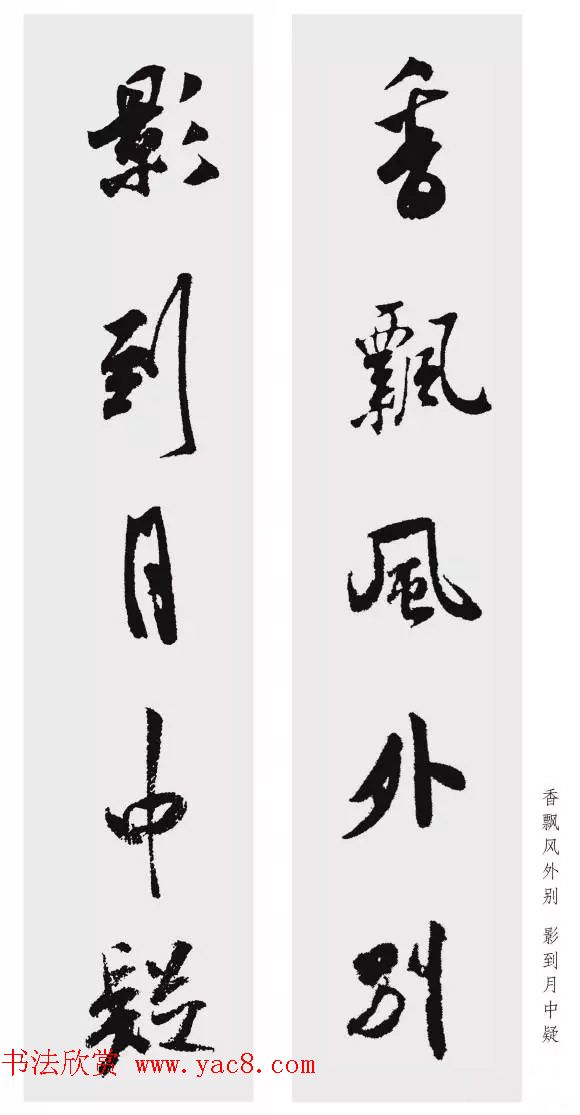 香飄風外别
影到月中疑
香飘风外别 影到月中疑
书法欣赏 www.yac8.com